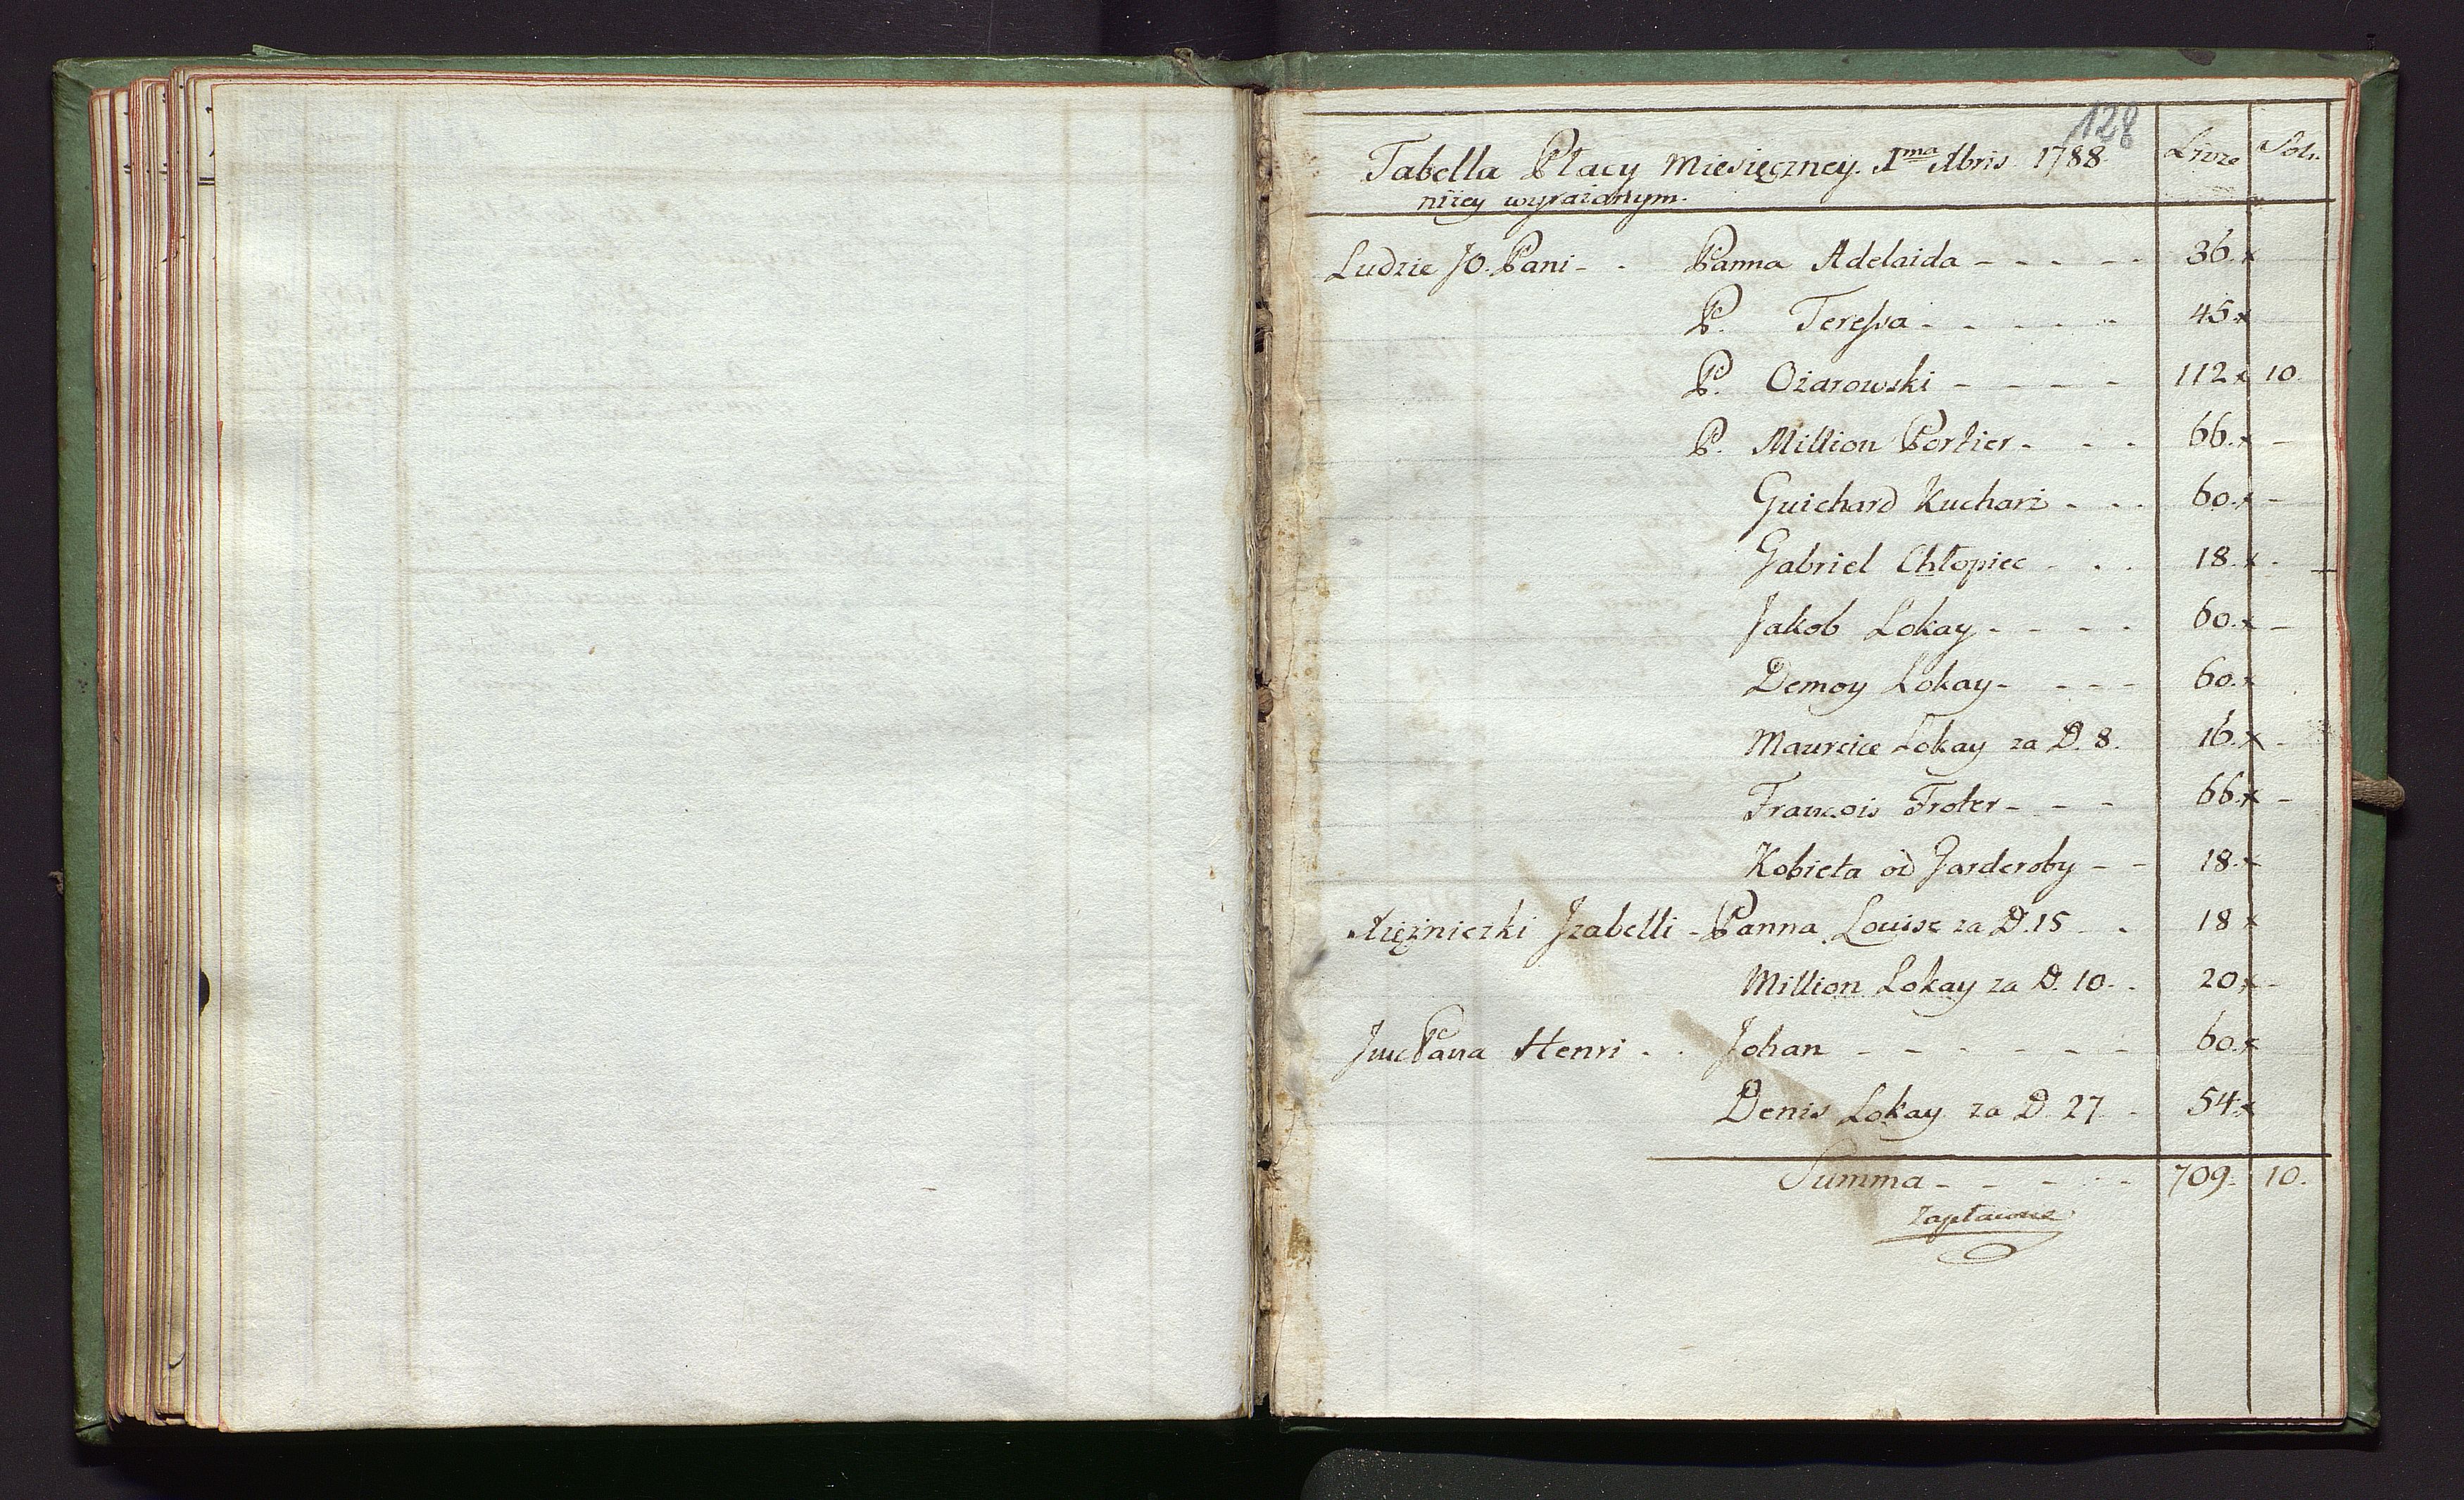 128
Tabella Płacy Miesięczney. I^ma Xbris 1788. Livre Sols.
niżey wyrażonym.
Ludzie JO. Pani - - Panna Adelaida - - - - - 36. x
P. Teressa - - - - - 45. x
P. Ożarowski - - - - 112 x 10.
P. Million Portier - - - 66. x -
Guichard Kucharz - - - 60. x -
Gabriel Chłopiec - - - 18. x -
Jakob Lokay - - - - 60. x -
Demoy Lokay - - - - 60. x
Maurcice Lokay za D. 8. 16. x -
Francois Froter - - - 66. x -
Kobieta od Garderoby - - 18. x
Xiężniczki Izabelli - Panna Louise za D. 15 - - 18 x
Million Lokay za D. 10. - 20 x -
JmcPana Henri - - Johan - - - - - - 60. x
Denis Lokay za D. 27 - 54. x
Summa - - - - - 709. 10.
Zapłacone